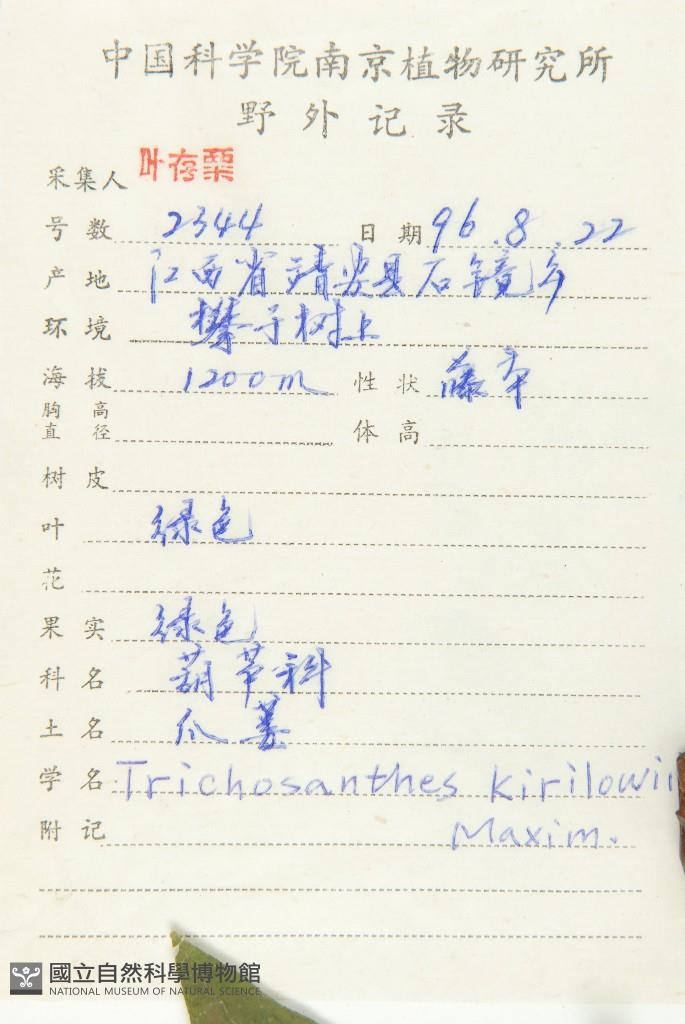 中国科学院南京植物研究所
野外记录
采集人 叶存粟
号数 2344 日期 96.8.22
产地 江西省靖安县石镜乡
环境 攀于树上
海拔 1200m 性状 藤本
胸高直径 体高
树皮
叶 绿色
花
果实 绿色
科名 葫芦科
土名 瓜蒌
学名 Trichosanthes kirilowii
附记 Maxim.
國立自然科學博物館
NATIONAL MUSEUM OF NATURAL SCIENCE